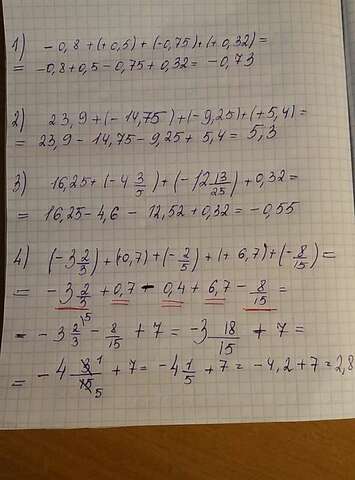 1) -0,8 + (+0,5) + (-0,75) + (+0,32) =
= -0,8 + 0,5 - 0,75 + 0,32 = -0,73
2) 23,9 + (-14,75) + (-9,25) + (+5,4) =
= 23,9 - 14,75 - 9,25 + 5,4 = 5,3
3) 16,25 + (-4 3/5) + (-12 13/25) + 0,32 =
= 16,25 - 4,6 - 12,52 + 0,32 = -0,55
4) (-3 2/3) + (+0,7) + (-2/5) + (+6,7) + (-8/15) =
= -3 2/3 + 0,7 - 0,4 + 6,7 - 8/15 =
= -3 2/3 - 8/15 + 7 = -3 18/15 + 7 =
= -4 3/15 + 7 = -4 1/5 + 7 = -4,2 + 7 = 2,8